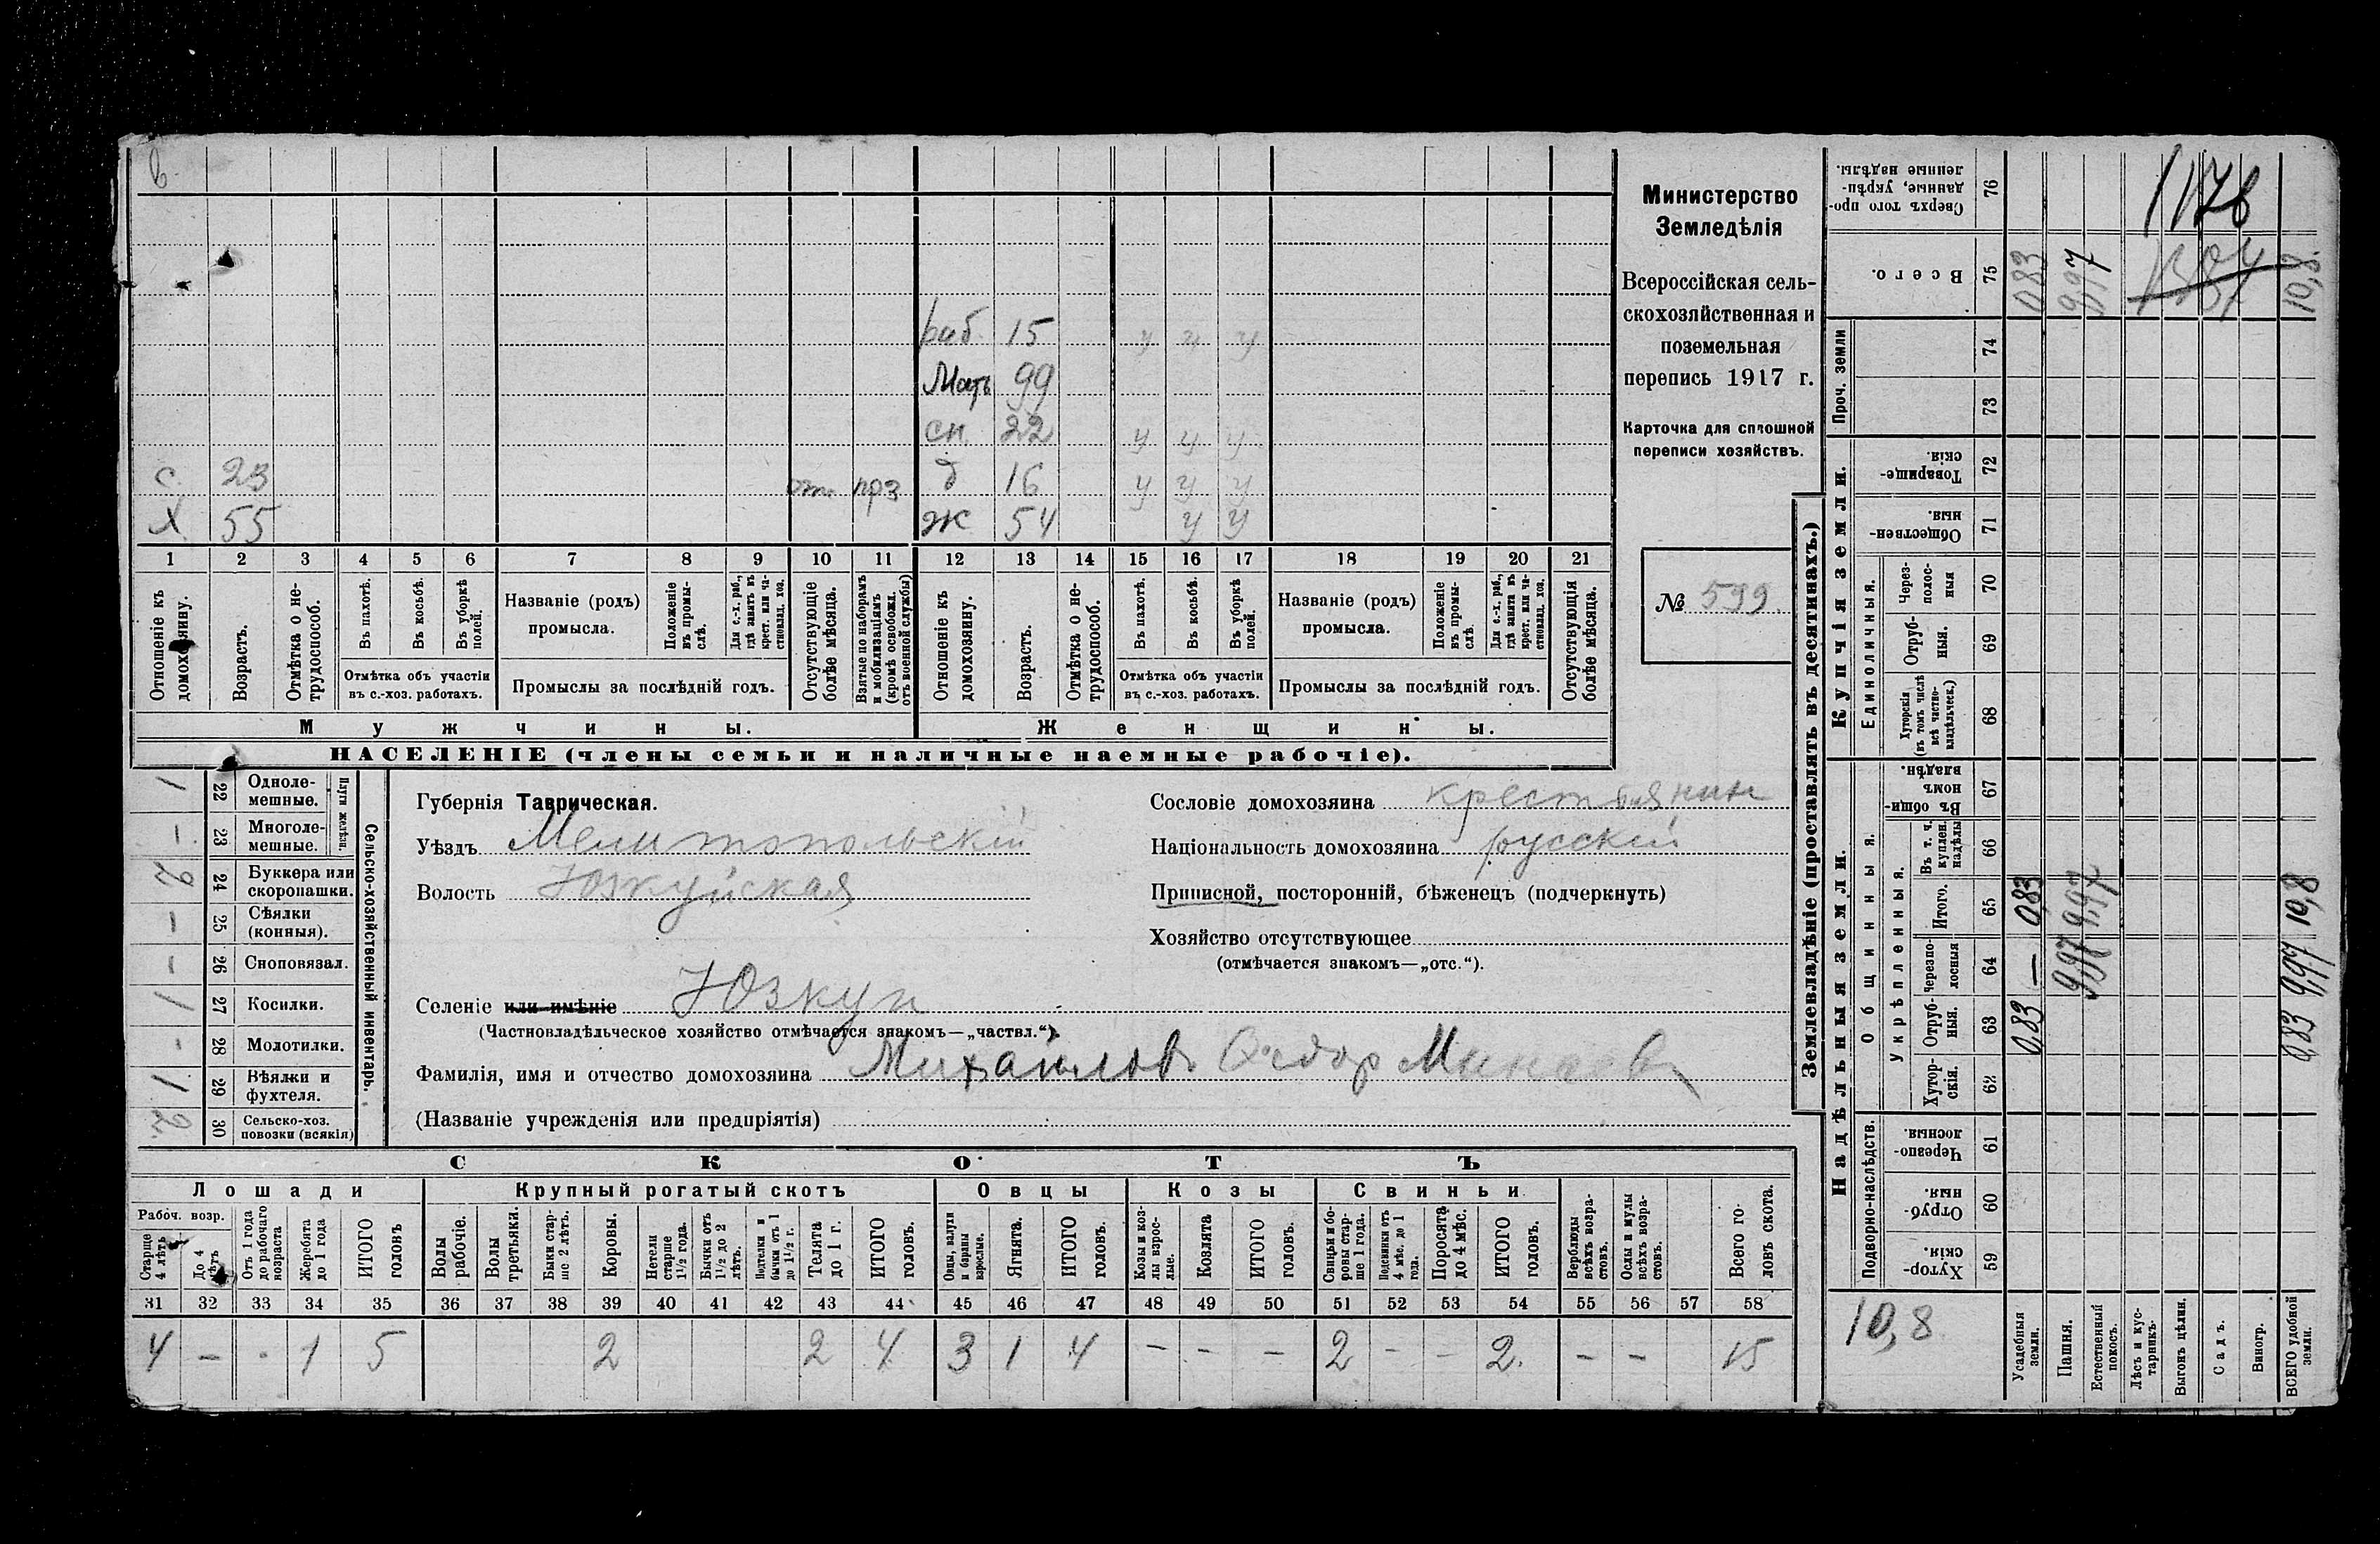 в
раб. 15 у у у
Мать 99
сн. 22 у у у
с. 23 отс прз д 16 у у у
Х 55 ж 54 у у
1 2 3 4 5 6 7 8 9 10 11 12 13 14 15 16 17 18 19 20 21
Отношеніе къ домохозяину.
Возрастъ.
Отмѣтка о нетрудоспособ.
Въ пахотѣ.
Въ косьбѣ.
Въ уборкѣ полей.
Отмѣтка объ участіи въ с.-хоз. работахъ.
Названіе (родъ) промысла.
Положеніе въ промыслѣ.
Для с.-х. раб., гдѣ занятъ въ крест. или частновлад. хоз.
Промыслы за послѣдній годъ.
Отсутствующіе болѣе мѣсяца.
Взятые по наборамъ и мобилизаціямъ (кромѣ освобожд. отъ военной службы)
Отношеніе къ домохозяину.
Возрастъ.
Отмѣтка о нетрудоспособ.
Въ пахотѣ.
Въ косьбѣ.
Въ уборкѣ полей.
Отмѣтка объ участіи въ с.-хоз. работахъ.
Названіе (родъ) промысла.
Положеніе въ промыслѣ.
Для с.-х. раб., гдѣ занята въ крест. или частновлад. хоз.
Промыслы за послѣдній годъ.
Отсутствующія болѣе мѣсяца.
Мужчины.
Женщины.
НАСЕЛЕНІЕ (члены семьи и наличные наемные рабочіе).
Министерство
Земледѣлія
Всероссійская сель-
скохозяйственная и
поземельная
перепись 1917 г.
Карточка для сплошной
переписи хозяйствъ.
№ 599
Плуги желѣзн.
1 22 Одноле-мешные.
- 23 Многоле-мешные.
2 24 Буккера или скоропашки.
- 25 Сѣялки (конныя).
- 26 Сноповязал.
1 27 Косилки.
- 28 Молотилки.
1 29 Вѣялки и фухтеля.
2 30 Сельско-хоз. повозки (всякія)
Сельско-хозяйственный инвентарь.
Губернія Таврическая.
Уѣздъ Мелитопольскій
Волость Юзкуйская
Селеніе или имѣніе Юзкуи
(Частновладѣльческое хозяйство отмѣчается знакомъ—„частвл.“).
Фамилія, имя и отчество домохозяина Михайловъ Ѳедор Минаев
(Названіе учрежденія или предпріятія)
Сословіе домохозяина крестьянин
Національность домохозяина русскій
Приписной, посторонній, бѣженецъ (подчеркнуть)
Хозяйство отсутствующее
(отмѣчается знакомъ—„отс.“).
СКОТЪ
Лошади Крупный рогатый скотъ Овцы Козы Свиньи
Рабоч. возр.
Старше 4 лѣтъ
До 4 лѣтъ
Отъ 1 года до рабочаго возраста
Жеребята до 1 года
ИТОГО головъ
Волы рабочіе.
Волы третьяки.
Быки старше 2 лѣтъ.
Коровы.
Нетели старше 1½ года.
Бычки отъ 1½ до 2 лѣтъ.
Подтелки и бычки отъ 1 до 1½ г.
Телята до 1 г.
ИТОГО головъ.
Овцы, валухи и бараны взрослые.
Ягнята.
ИТОГО головъ.
Козы и козлы взрослые.
Козлята
ИТОГО головъ.
Свиньи и боровы старше 1 года.
Подсвинки отъ 4 мѣс. до 1 года.
Поросята до 4 мѣс.
ИТОГО головъ.
Верблюды всѣхъ возрастовъ.
Ослы и мулы всѣхъ возрастовъ.
Всего головъ скота.
31 32 33 34 35 36 37 38 39 40 41 42 43 44 45 46 47 48 49 50 51 52 53 54 55 56 57 58
4 - - 1 5 2 2 4 3 1 4 - - - 2 - - 2. - - 15
Землевладѣніе (проставлять въ десятинахъ.)
Надѣльныя земли.
Купчія земли.
Проч. земли
Подворно-наслѣдств.
Общинныя.
Укрѣпленныя.
Единоличныя.
Сверхъ того проданные, укрѣпленные надѣлы. 76 1178
Всего. 75 0,83 9,97 10,8
74
73
Товарищескія. 72
Общественныя. 71
Через-полосныя 70
Отрубныя. 69
Хуторскія (въ томъ числѣ всѣ частновладѣльческ.) 68
Въ общинномъ владѣн. 67
Въ т. ч. куплен. надѣлы 66
Итого. 65 0,83 9,97 10,8
Черезполосныя 64 — 9,97 9,97
Отрубныя. 63 0,83 0,83
Хуторскія. 62
Черезполосныя. 61
Отрубныя. 60
Хуторскія. 59
10,8
Усадебныя земли.
Пашня.
Естественный покосъ.
Лѣсъ и кустарникъ.
Выгонъ цѣлин.
Садъ.
Виногр.
ВСЕГО удобной земли.